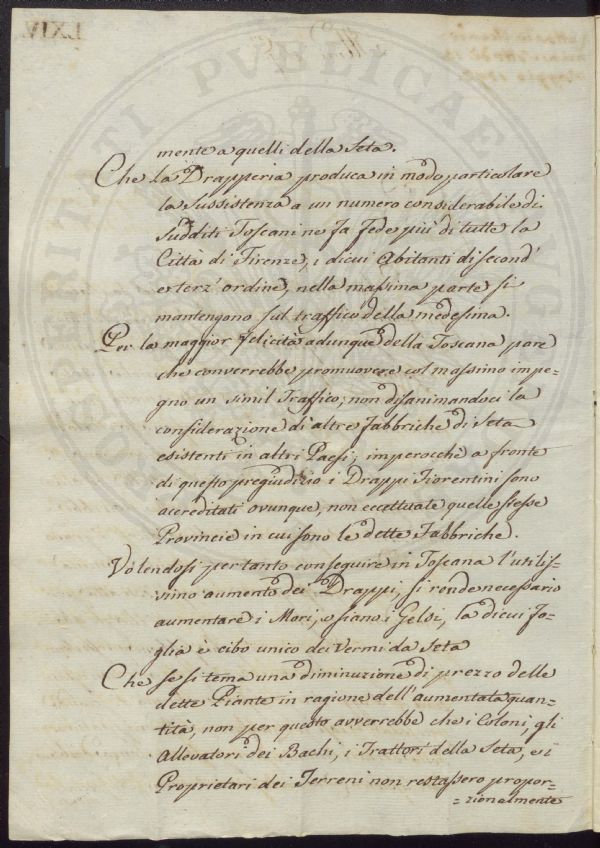 mente a quelli della Seta.
Che la Drapperia produca in modo particolare
la Sussistenza a un numero considerabile di
Sudditi Toscani ne fa fede più di tutte la
Città di Firenze, i di cui Abitanti di second'
e terz' ordine, nella massima parte si
mantengono sul traffico della medesima.
Per la maggior felicità adunque della Toscana pare
che converrebbe promuovere col massimo impe=
gno un simil Traffico; non disanimandoci la
considerazione di altre Fabbriche di Seta
esistenti in altri Paesi, imperocchè a fronte
di questo pregiudizio i Drappi Fiorentini sono
accreditati ovunque, non eccettuate quelle stesse
Provincie in cui sono le dette Fabbriche.
Volendosi pertanto conseguire in Toscana l'utilis=
simo aumento dei Drappi, si rende necessario
aumentare i Mori, o siano i Gelsi, la di cui fo=
glia è cibo unico dei Vermi da Seta
Che se si tema una diminuzione di prezzo delle
dette Piante in ragione dell'aumentata quan=
tità, non per questo avverrebbe che i Coloni, gli
Allevatori dei Bachi, i Trattori della Seta, e i
Proprietari dei Terreni non restassero propor=
=zionalmente